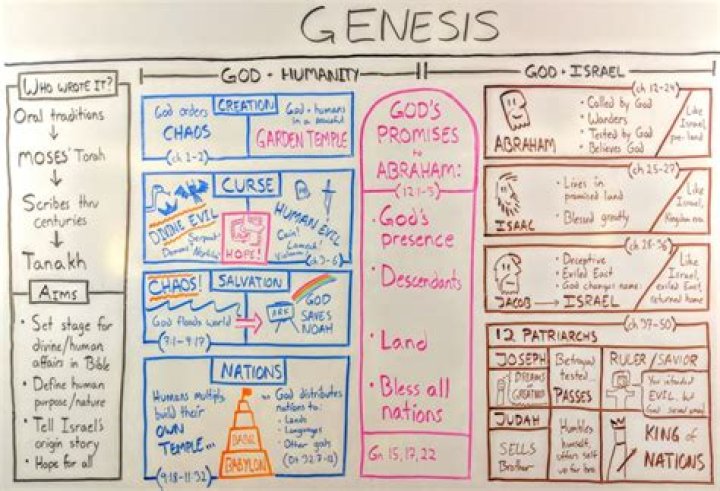 GENESIS
WHO WROTE IT?
Oral traditions
MOSES' Torah
Scribes thru
centuries
Tanakh
AIMS
• Set stage for
divine/human
affairs in Bible
• Define human
purpose/nature
• Tell Israel's
origin story
• Hope for all
GOD • HUMANITY
CREATION
God orders
CHAOS
God + humans
in a peaceful
GARDEN TEMPLE
(ch 1-2)
CURSE
DIVINE EVIL
Serpent
HOPE!
HUMAN EVIL
Cain
Lamech
Violence
(ch 3-6)
CHAOS!
SALVATION
God floods world
ARK
GOD
SAVES
NOAH
(7:1-9:17)
NATIONS
Humans multiply
build their
OWN
TEMPLE...
BABEL
BABYLON
... God distributes
nations to:
• Lands
• Languages
• Other gods
(Dt 32:7-12)
(9:18-11:32)
GOD'S
PROMISES
to
ABRAHAM:
(12:1-5)
• God's
presence
• Descendants
• Land
• Bless all
nations
Gn 15, 17, 22
GOD • ISRAEL
(ch 12-24)
ABRAHAM
• Called by God
• Wanders
• Tested by God
• Believes God
Like
Israel,
pre-land
(ch 25-27)
ISAAC
• Lives in
promised land
• Blessed greatly
Like
Israel,
Kingdom era
(ch 28-36)
JACOB → ISRAEL
• Deceptive
• Exiled East
• God changes name:
Like
Israel,
exiled East,
returned home
(ch 37-50)
12 PATRIARCHS
JOSEPH
DREAMS
GREATNESS
Betrayed
tested...
PASSES
RULER/SAVIOR
You intended
EVIL, but
God good
JUDAH
SELLS
Brother
Humbles
himself,
offers self
up for bro.
KING of
NATIONS